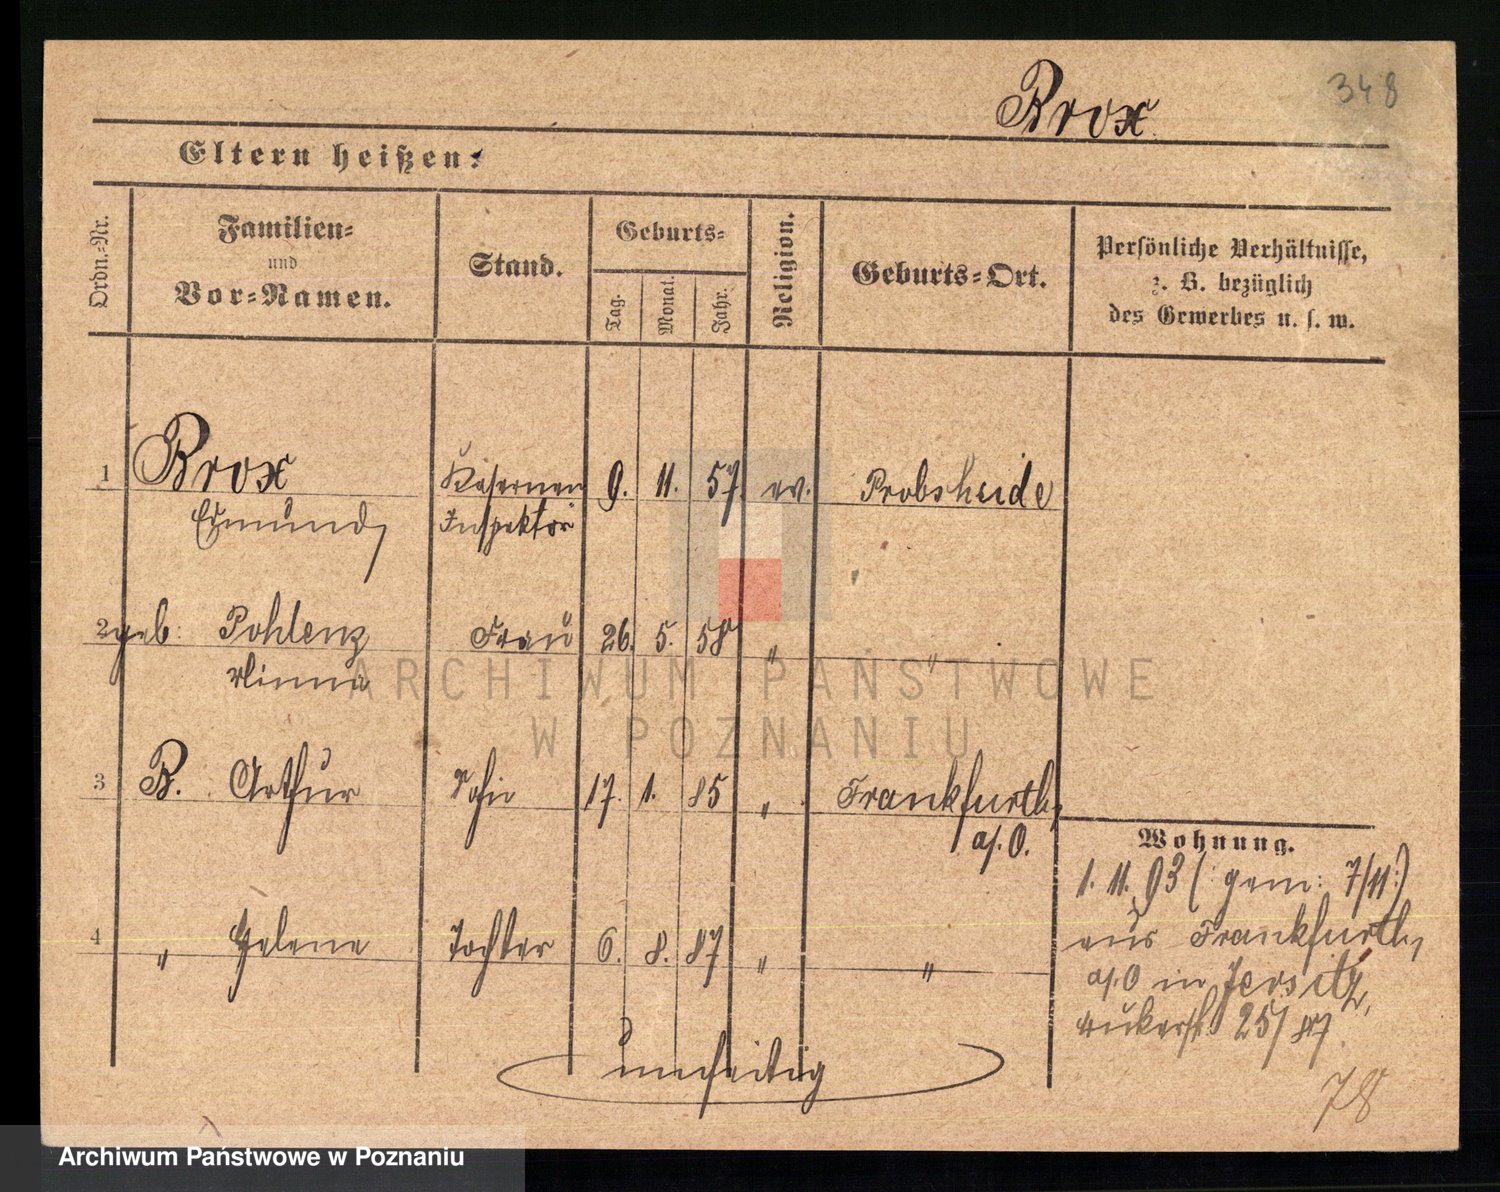 348
Brox
Eltern heißen:
Ordn.-Nr.
Familien-
und
Vor-Namen.
Stand.
Geburts-
Tag.
Monat.
Jahr.
Religion.
Geburts-Ort.
Persönliche Verhältnisse,
z. B. bezüglich
des Gewerbes u. s. w.
1 Brox Kasernen 9. 11. 57. ev. Probsheide
Edmund, Inspektor
2 geb: Pohlenz Frau 26. 5. 58 " "
Minna
3 B. Arthur Sohn 17. 1. 85 " Frankfurth,
a/. O.
4 " Helene Tochter 6. 8. 87 " "
umseitig
Wohnung.
1. 11. 93 (: gem: 7/11:)
aus Frankfurth,
a/. O in Jersitz,
25/
78
ARCHIWUM PAŃSTWOWE
W POZNANIU
Archiwum Państwowe w Poznaniu